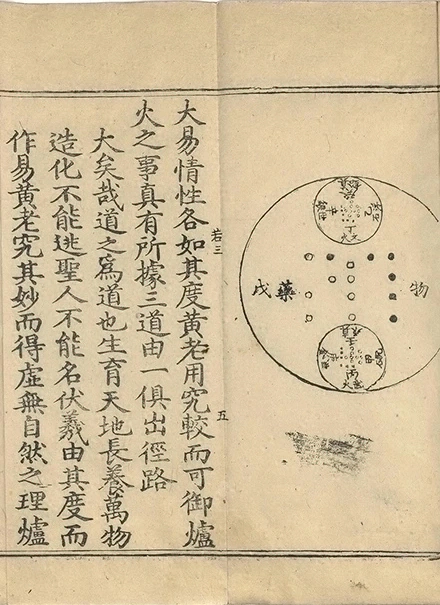 物
藥
戊
丁
壬
丙
三
五
大易情性各如其度黃老用究較而可御爐
火之事真有所據三道由一俱出徑路
大矣哉道之爲道也生育天地長養萬物
造化不能逃聖人不能名伏羲由其度而
作易黃老究其妙而得虛無自然之理爐